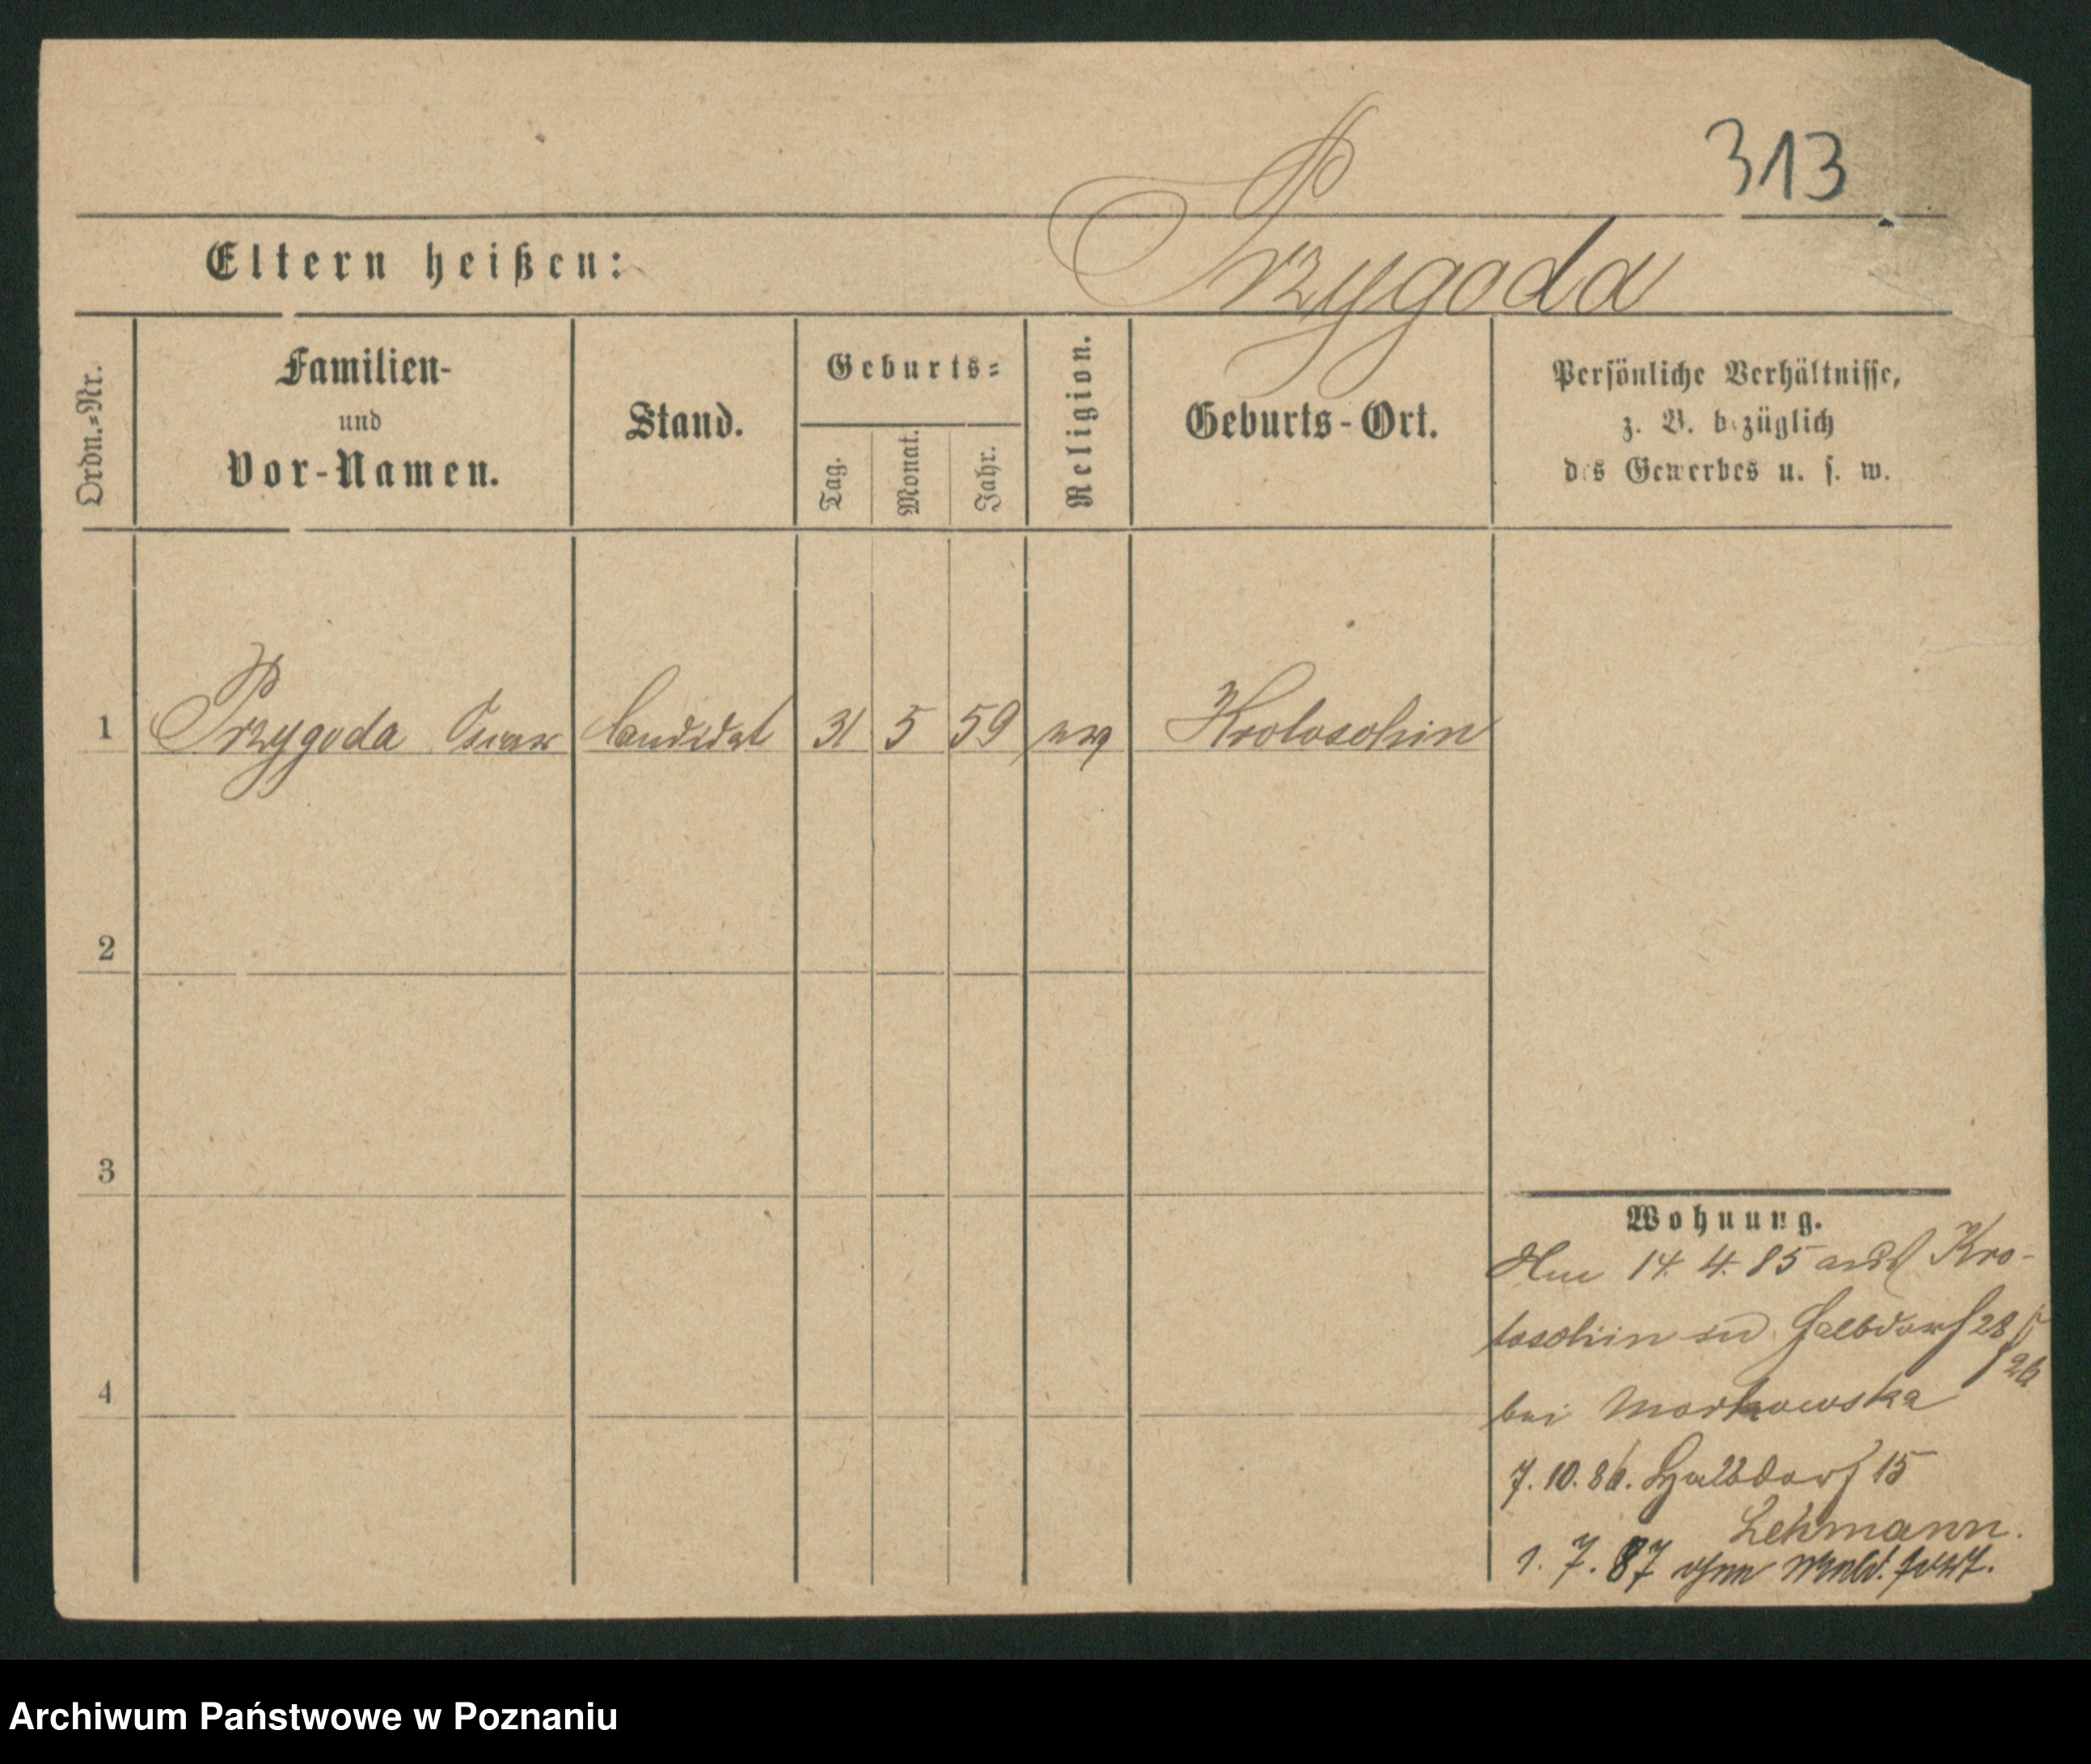 313
Przygoda
Eltern heißen:
Ordn.=Nr.
Familien-
und
Vor-Namen.
Stand.
Geburts=
Tag.
Monat.
Jahr.
Religion.
Geburts-Ort.
Persönliche Verhältnisse,
z. B. bezüglich
des Gewerbes u. s. w.
1 Przygoda Candidat 31 5 59 Krotoschin
2
3
4
Wohnung.
14. 4. 85 aus Kro-
toschin Halbdorf 28/26
bei Markowska
7. 10. 86. Halbdorf 15
Lehmann.
1. 7. 87 ohne fort.
Archiwum Państwowe w Poznaniu